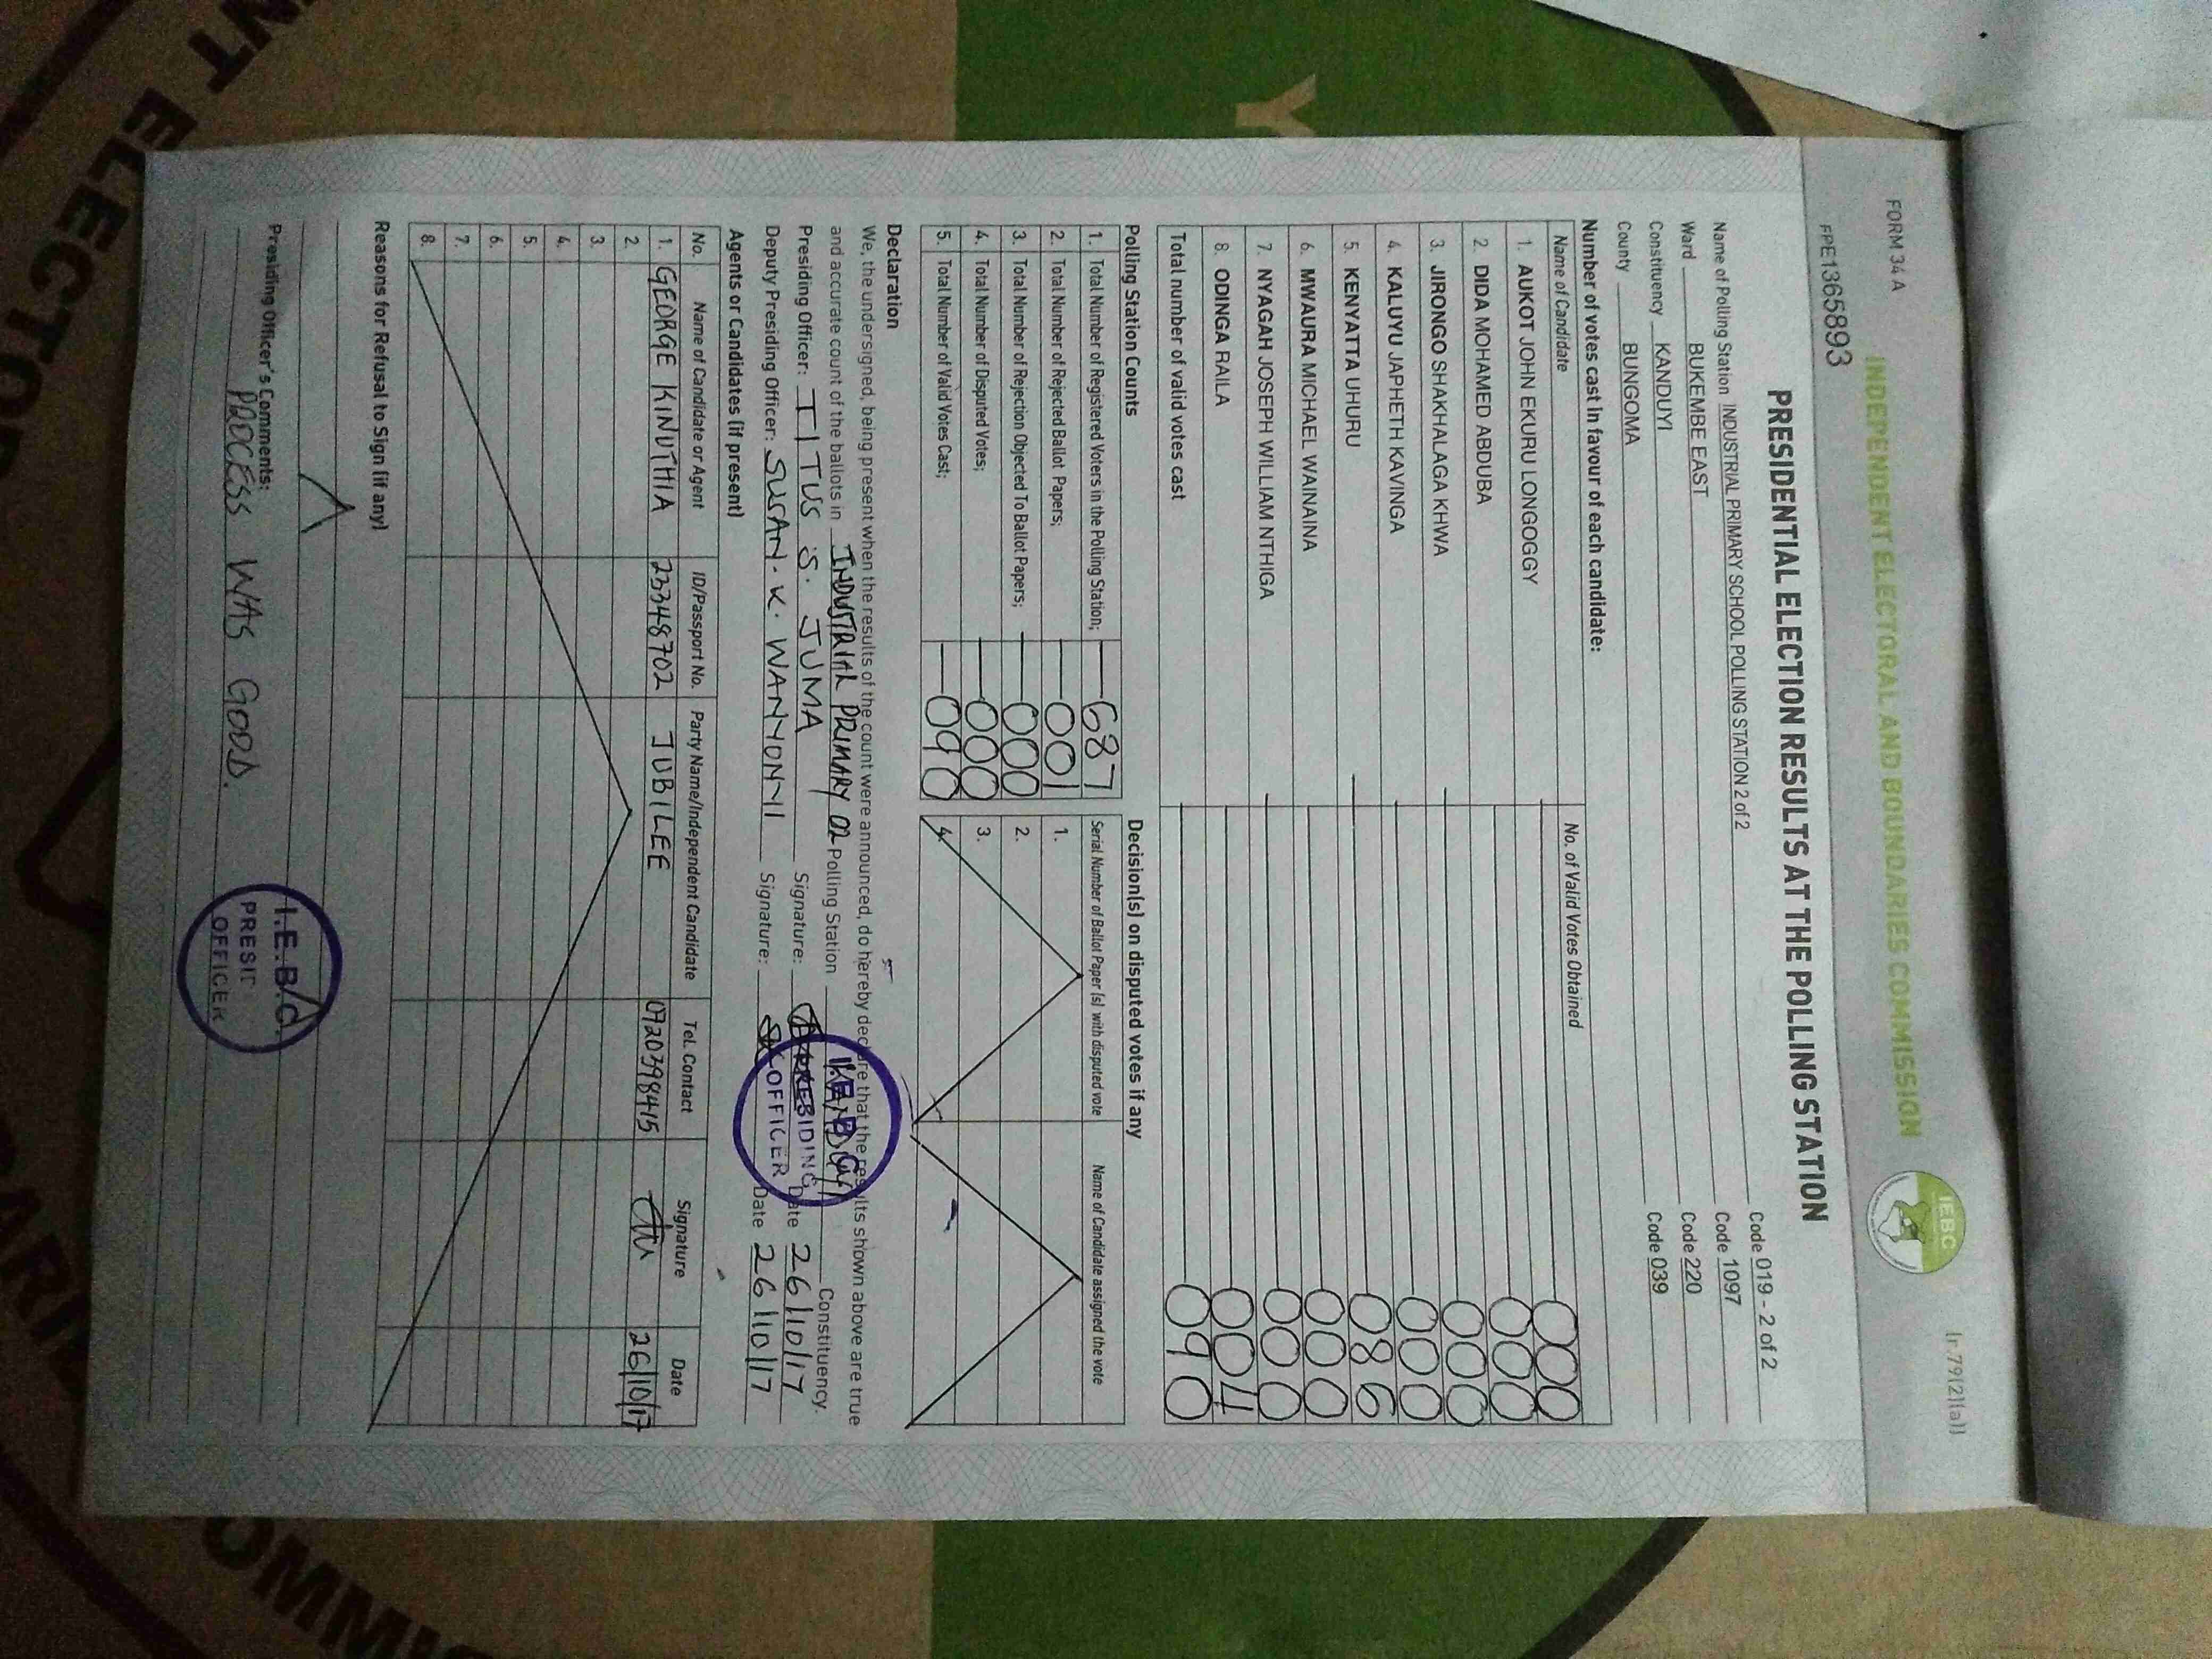 FORM 34 A
(r.79(2)(a))
INDEPENDENT ELECTORAL AND BOUNDARIES COMMISSION
IEBC
FPE1365893
PRESIDENTIAL ELECTION RESULTS AT THE POLLING STATION
Name of Polling Station INDUSTRIAL PRIMARY SCHOOL POLLING STATION 2 of 2 Code 019 - 2 of 2
Ward BUKEMBE EAST Code 1097
Constituency KANDUYI Code 220
County BUNGOMA Code 039
Number of votes cast in favour of each candidate:
Name of Candidate No. of Valid Votes Obtained
1. AUKOT JOHN EKURU LONGOGGY 000
2. DIDA MOHAMED ABDUBA 000
3. JIRONGO SHAKHALAGA KHWA 000
4. KALUYU JAPHETH KAVINGA 000
5. KENYATTA UHURU 086
6. MWAURA MICHAEL WAINAINA 000
7. NYAGAH JOSEPH WILLIAM NTHIGA 000
8. ODINGA RAILA 004
Total number of valid votes cast 090
Polling Station Counts
1. Total Number of Registered Voters in the Polling Station; 687
2. Total Number of Rejected Ballot Papers; 001
3. Total Number of Rejection Objected To Ballot Papers; 000
4. Total Number of Disputed Votes; 000
5. Total Number of Valid Votes Cast; 090
Decision(s) on disputed votes if any
Serial Number of Ballot Paper (s) with disputed vote Name of Candidate assigned the vote
1.
2.
3.
4.
Declaration
We, the undersigned, being present when the results of the count were announced, do hereby declare that the results shown above are true
and accurate count of the ballots in INDUSTRIAL PRIMARY 02 Polling Station KANDUYI Constituency.
Presiding Officer: TITUS S. JUMA Signature: Date 26/10/17
Deputy Presiding Officer: SUSAN. K. WANYONYI Signature: Date 26/10/17
I.E.B.C.
PRESIDING
OFFICER
Agents or Candidates (if present)
No. Name of Candidate or Agent ID/Passport No. Party Name/Independent Candidate Tel. Contact Signature Date
1. GEORGE KINUTHIA 23348702 JUBILEE 0720398415 26/10/17
2.
3.
4.
5.
6.
7.
8.
Reasons for Refusal to Sign (if any)
Presiding Officer's Comments:
PROCESS WAS GOOD.
I.E.B.C.
OFFICER